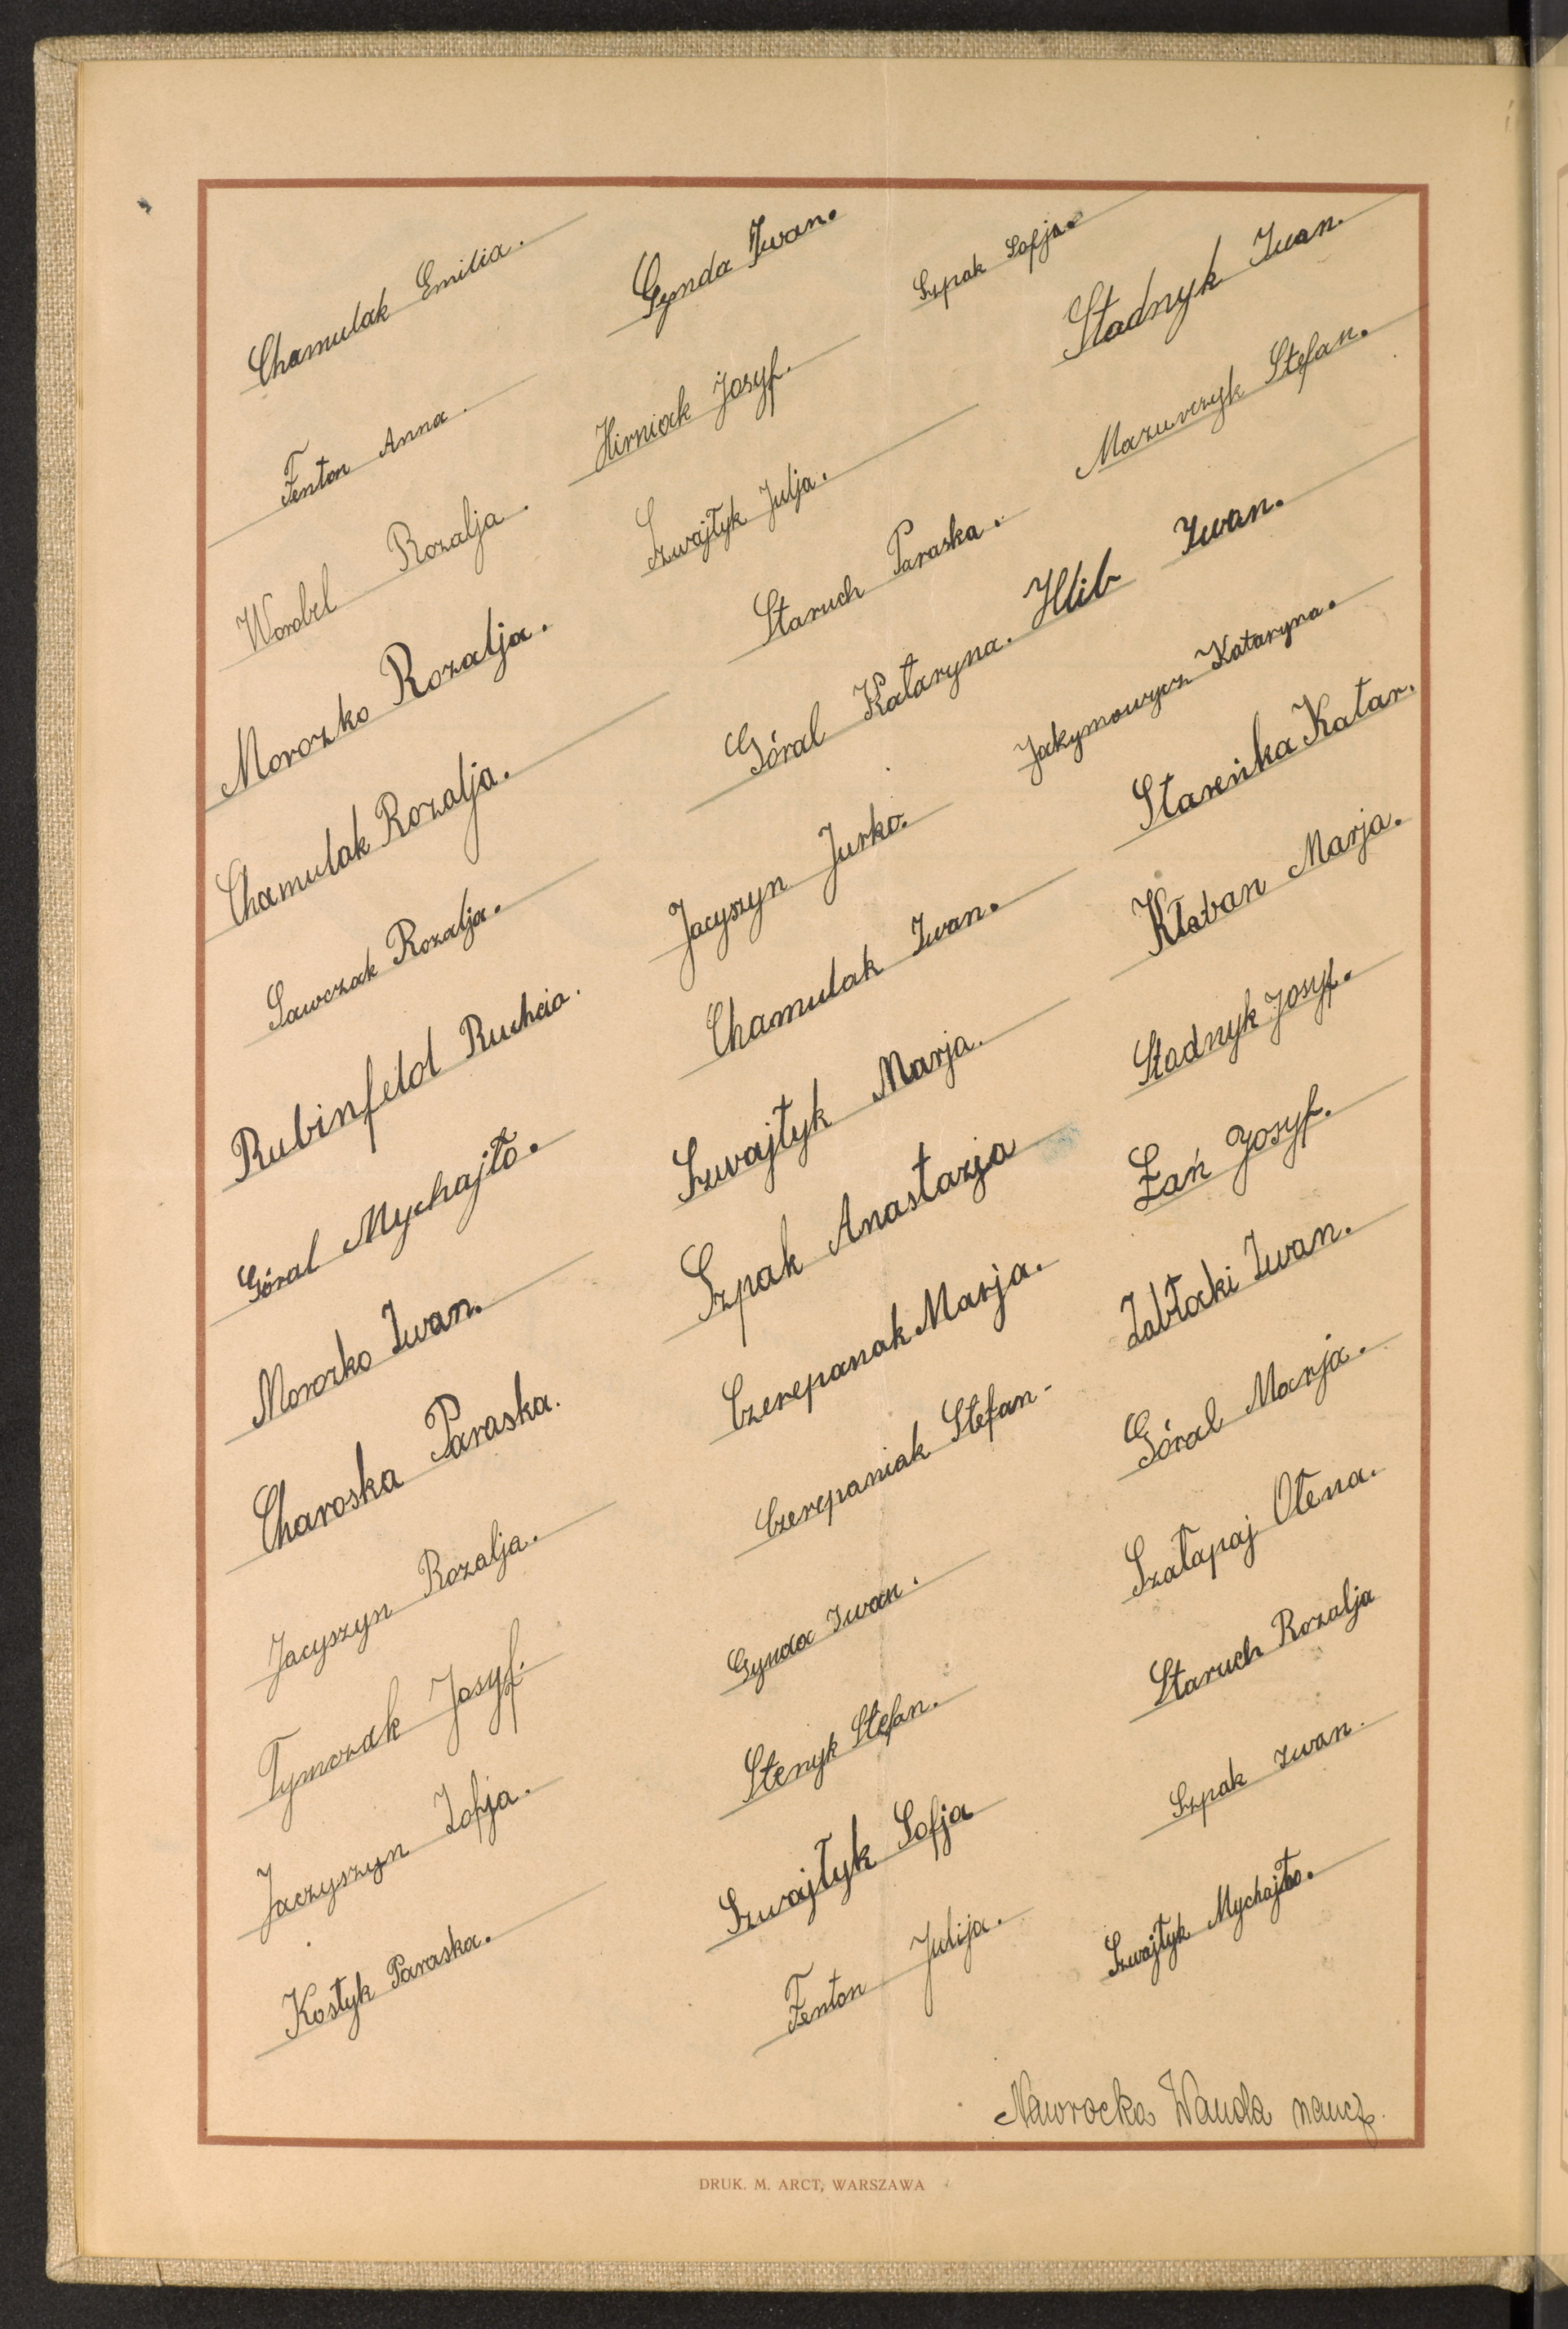 Chamulak Emilia.
Fenton Anna.
Worobel Rozalja.
Morozko Rozalja.
Chamulak Rozalja.
Sawczak Rozalja.
Rubinfeld Ruchcia.
Góral Mychajło.
Morozko Iwan.
Charoska Paraska.
Jacyszyn Rozalja.
Tymczak Josyf.
Jaczyszyn Zofja.
Kostyk Paraska.
Gynda Iwan.
Hirniak Josyf.
Szwajłyk Julja.
Staruch Paraska.
Góral Kataryna.
Jacyszyn Jurko.
Chamulak Iwan.
Szwajłyk Marja.
Szpak Anastazja
Czerepanak Marja.
Czerepaniak Stefan-
Gynda Iwan.
Stenyk Stefan.
Szwajłyk Sofja
Fenton Julija.
Szpak Sofja.
Stadnyk Iwan.
Mazurczyk Stefan.
Hlib Iwan.
Jakymowycz Kataryna.
Stareńka Katar.
Kłeban Marja.
Stadnyk Josyf.
Zań Josyf.
Zabłocki Iwan.
Góral Marja.
Szałapaj Ołena.
Staruch Rozalja
Szpak Iwan.
Szwajłyk Mychajło.
Nawrocka Wanda naucz.
DRUK. M. ARCT, WARSZAWA